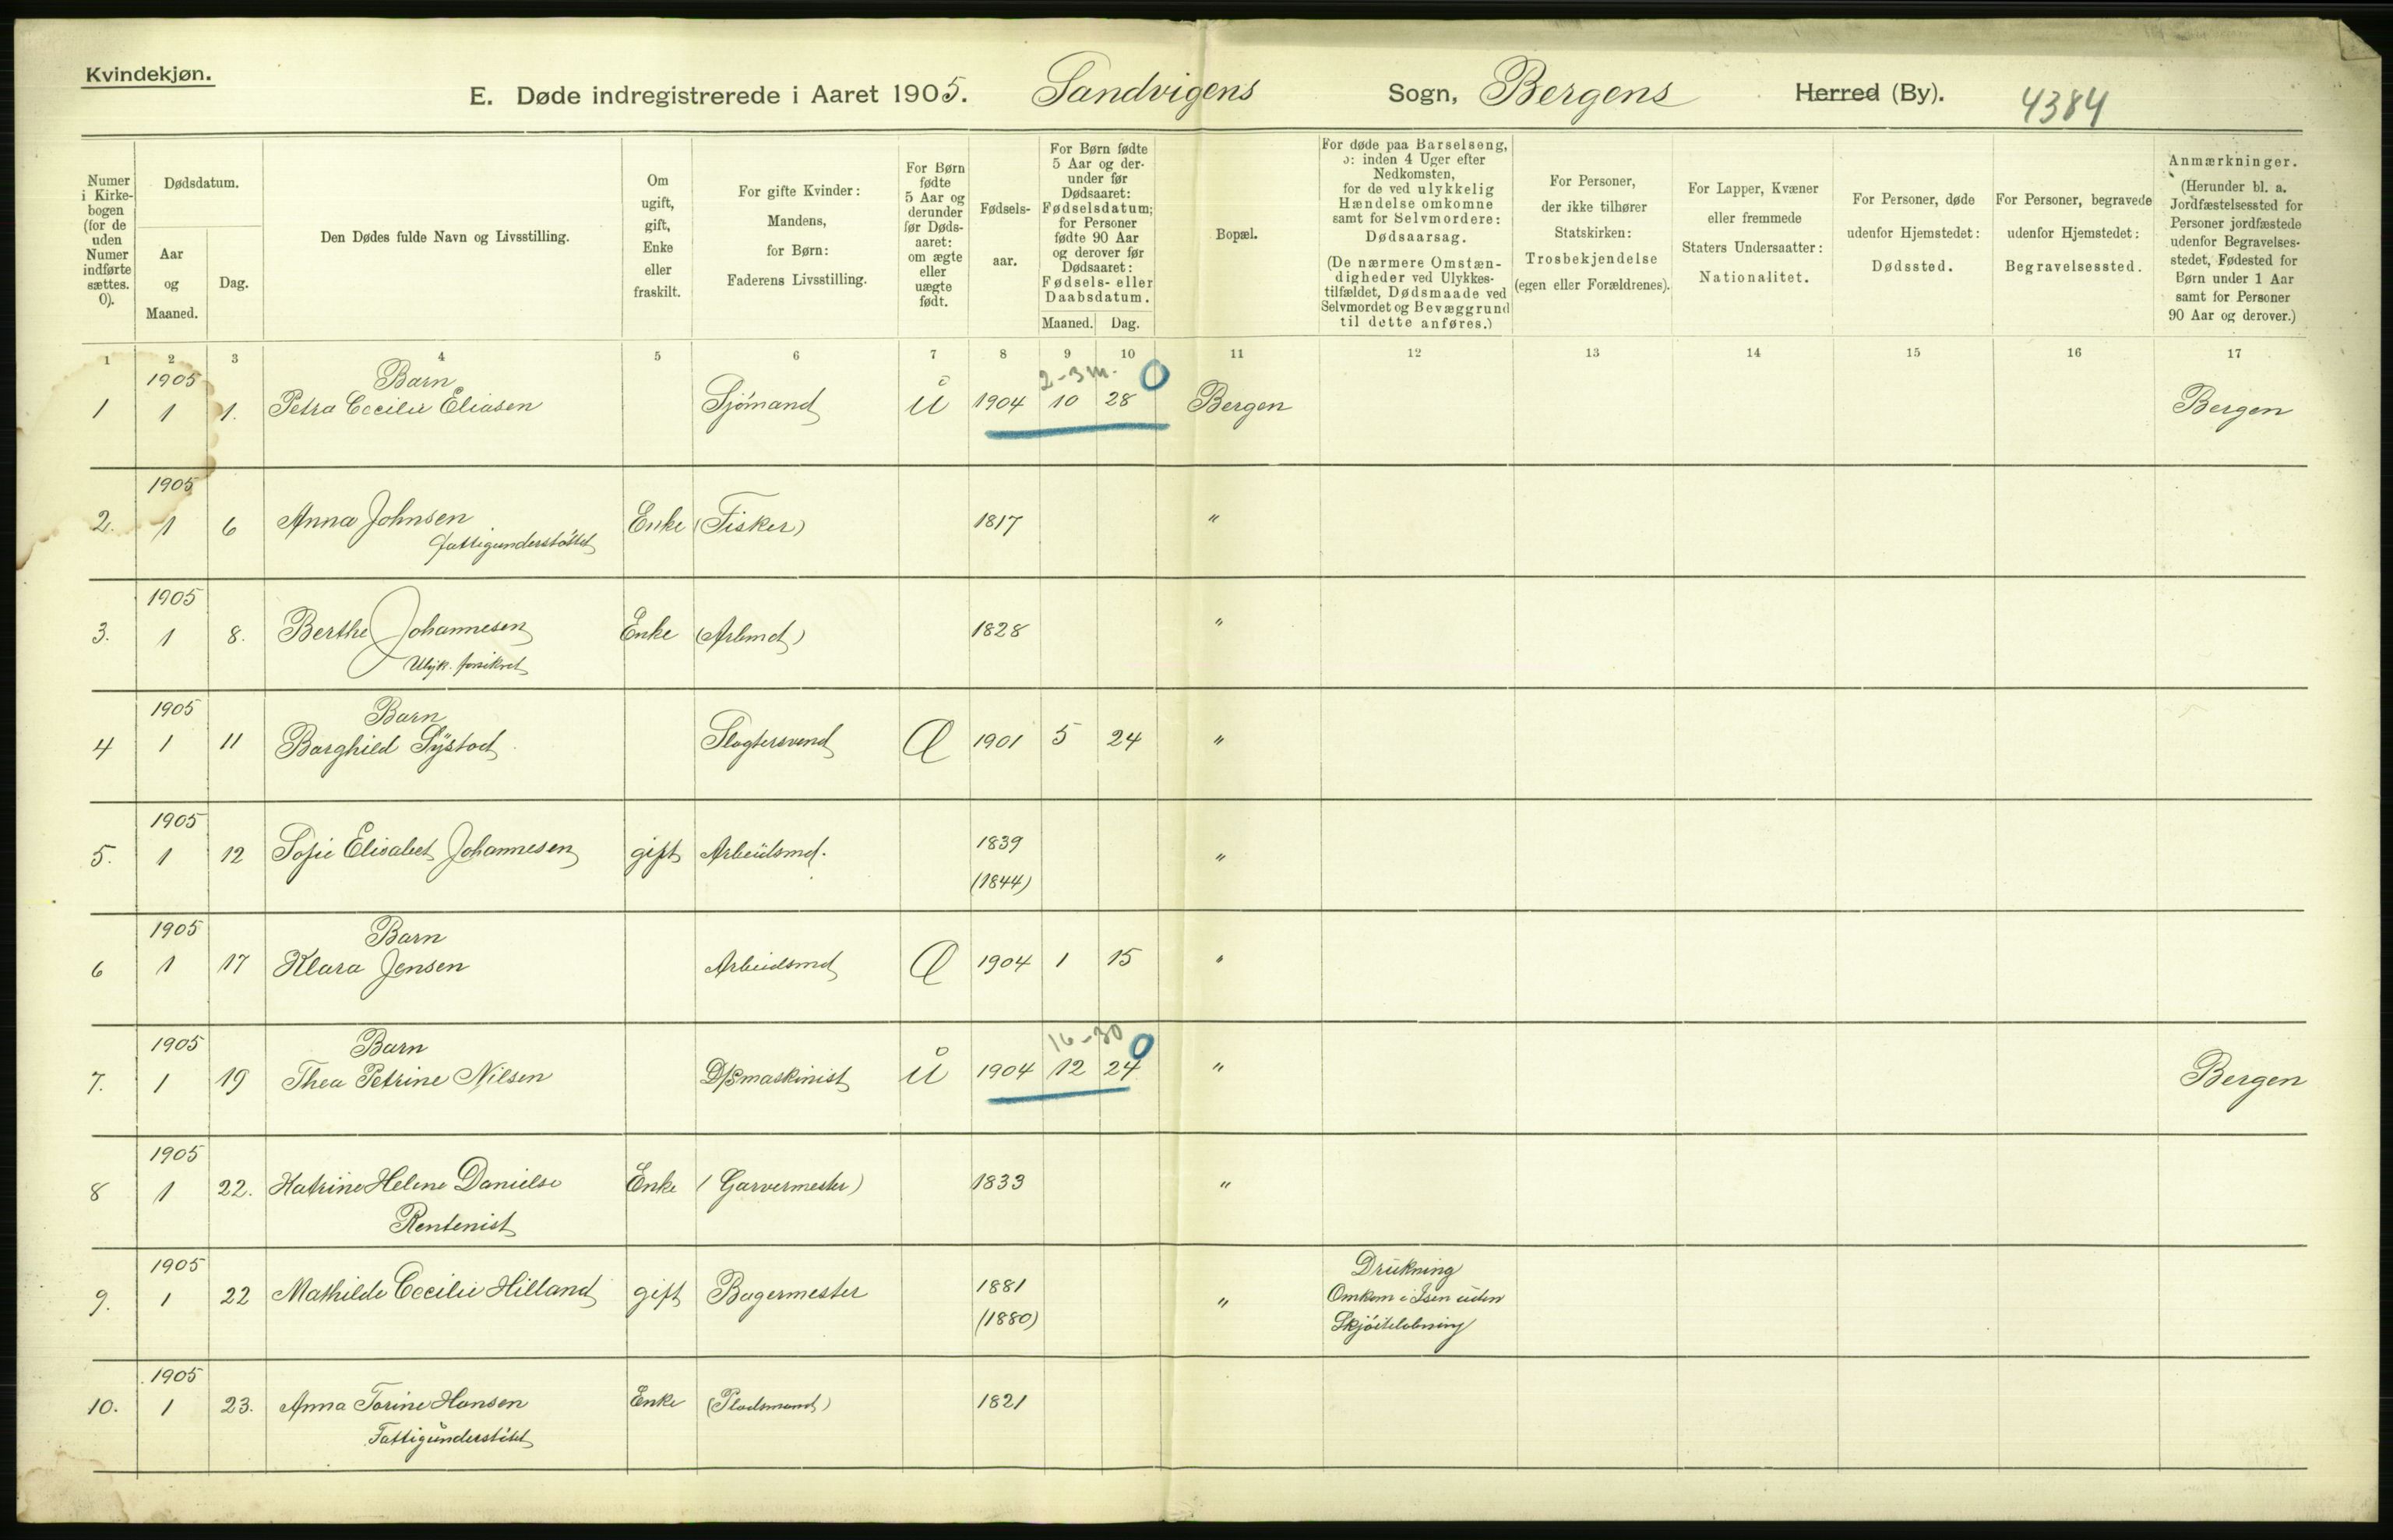 Kvindekjøn.
E. Døde indregistrerede i Aaret 1905. Sandvigens Sogn, Bergens Herred (By). 4384
Numer i Kirkebogen (for de uden Numer indførte sættes. 0).
Dødsdatum.
Aar og Maaned.
Dag.
Den Dødes fulde Navn og Livsstilling.
Om ugift, gift, Enke eller fraskilt.
For gifte Kvinder: Mandens, for Børn: Faderens Livsstilling.
For Børn fødte 5 Aar og derunder før Dødsaaret: om ægte eller uægte født.
Fødselsaar.
For Børn fødte 5 Aar og derunder før Dødsaaret: Fødselsdatum; for Personer fødte 90 Aar og derover før Dødsaaret: Fødsels- eller Daabsdatum.
Maaned. Dag.
Bopæl.
For døde paa Barselseng, ɔ: inden 4 Uger efter Nedkomsten, for de ved ulykkelig Hændelse omkomne samt for Selvmordere: Dødsaarsag.
(De nærmere Omstændigheder ved Ulykkestilfældet, Dødsmaade ved Selvmordet og Bevæggrund til dette anføres.)
For Personer, der ikke tilhører Statskirken: Trosbekjendelse (egen eller Forældrenes).
For Lapper, Kvæner eller fremmede Staters Undersaatter: Nationalitet.
For Personer, døde udenfor Hjemstedet: Dødssted.
For Personer, begravede udenfor Hjemstedet: Begravelsessted.
Anmærkninger.
(Herunder bl. a. Jordfæstelsessted for Personer jordfæstede udenfor Begravelsesstedet, Fødested for Børn under 1 Aar samt for Personer 90 Aar og derover.)
1 2 3 4 5 6 7 8 9 10 11 12 13 14 15 16 17
1905 Barn 2-3 m. 0
1 1 1. Petra Cecilie Eliasen Sjømand U 1904 10 28 Bergen Bergen
1905
2. 1 6 Anna Johnsen Enke (Fisker) 1817 "
Fattigunderstøttet
1905
3. 1 8. Berthe Johannesen Enke (Arbmd) 1828 "
Ulyk. forsikret
1905 Barn
4 1 11 Borghild Systad Slagtersvend Æ 1901 5 24 "
1905
5. 1 12 Sofie Elisabet Johannesen gift Arbeidsmd. 1839 "
(1844)
1905 Barn
6 1 17 Klara Jensen Arbeidsmd Æ 1904 1 15 "
1905 Barn 16-30 0
7. 1 19 Thea Petrine Nilsen D/Smaskinist U 1904 12 24 " Bergen
1905
8 1 22. Katrine Helene Danielse Enke (Garvermester) 1833 "
Rentenist
1905 Drukning
9. 1 22 Mathilde Cecilie Hilland gift Bagermester 1881 " Omkom i Isen uden
(1880) Skjøiteløbning
1905
10. 1 23. Anna Torine Hansen Enke (Pladsmand) 1821
Fattigunderstøttet